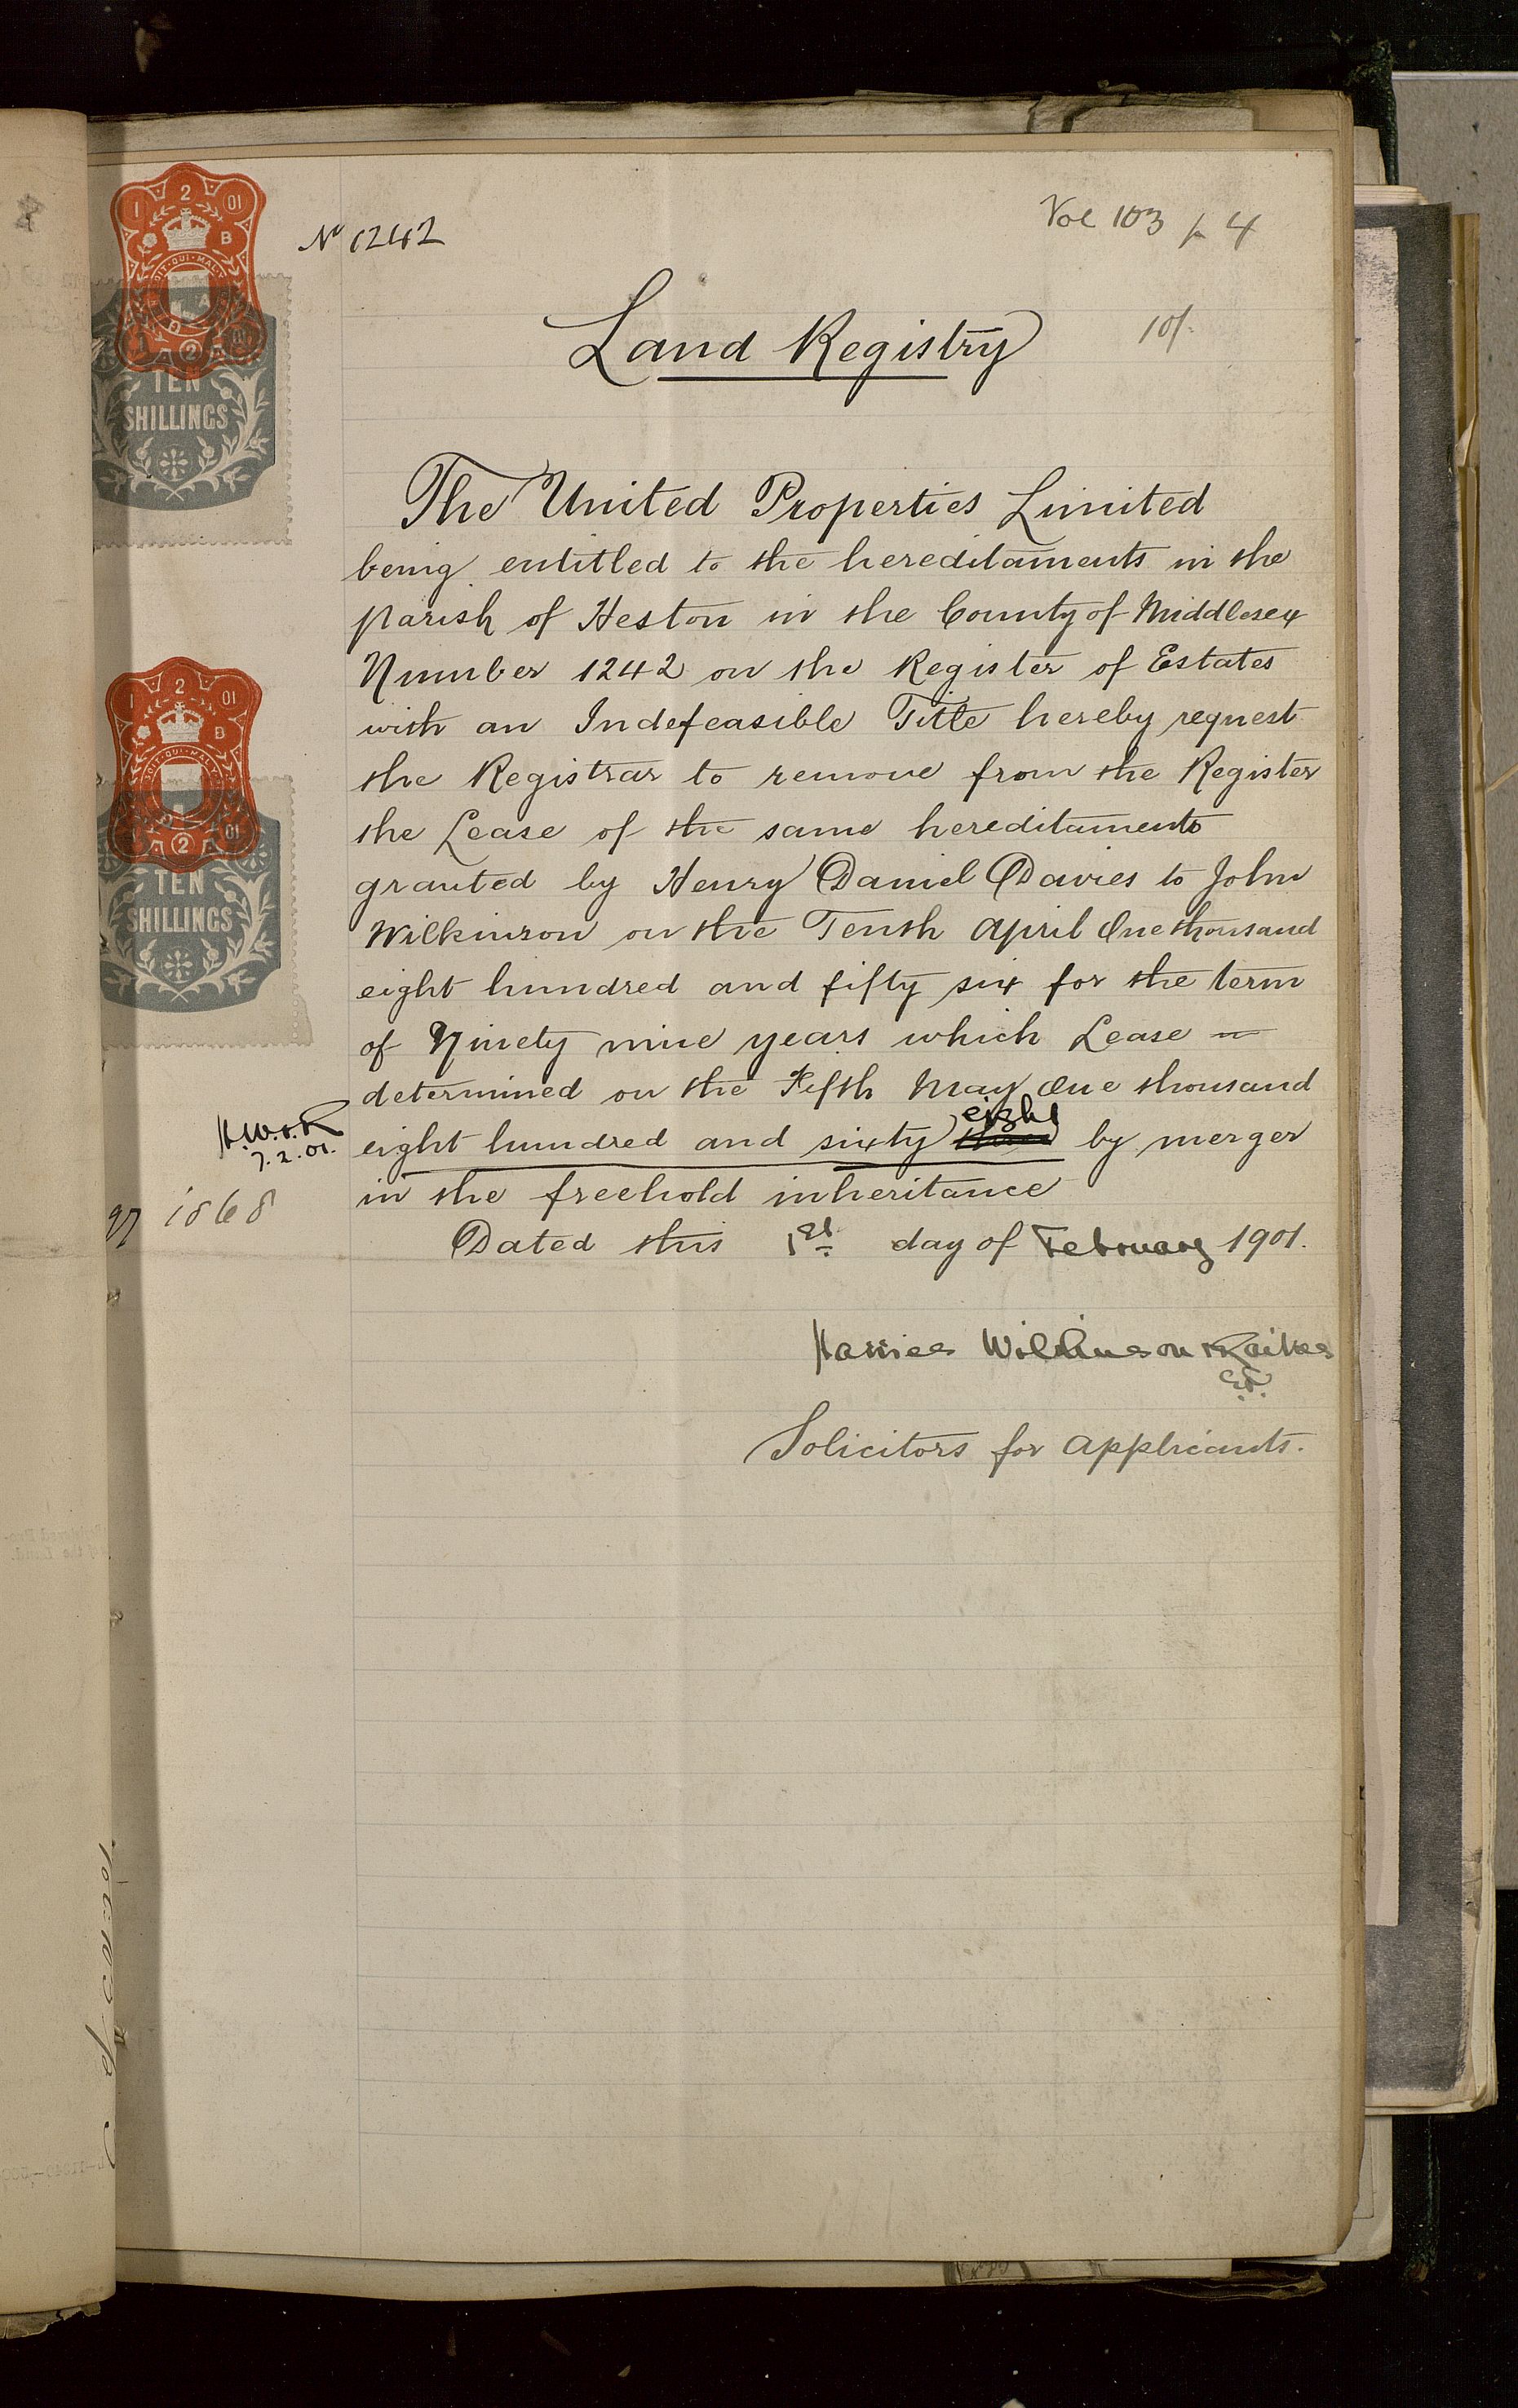 Nº 1242
Vol 103 p 4
Land Registry
10/-
The United Properties Limited
being entitled to the hereditaments in the
parish of Heston in the County of Middlesex
Number 1242 on the Register of Estates
with an Indefeasible Title hereby request
the Registrar to remove from the Register
the Lease of the same hereditaments
granted by Henry Daniel Davies to John
Wilkinson on the Tenth April One thousand
eight hundred and fifty six for the term
of Ninety nine years which Lease
determined on the Fifth May One thousand
eight hundred and sixty eight by merger
in the freehold inheritance
Dated this 1st day of February 1901.
Harries Wilkinson & Raikes
Solicitors for applicants.
H.W.&R
7.2.01.
1868
1 2 01
B
TEN
SHILLINGS
1 2 01
B
TEN
SHILLINGS